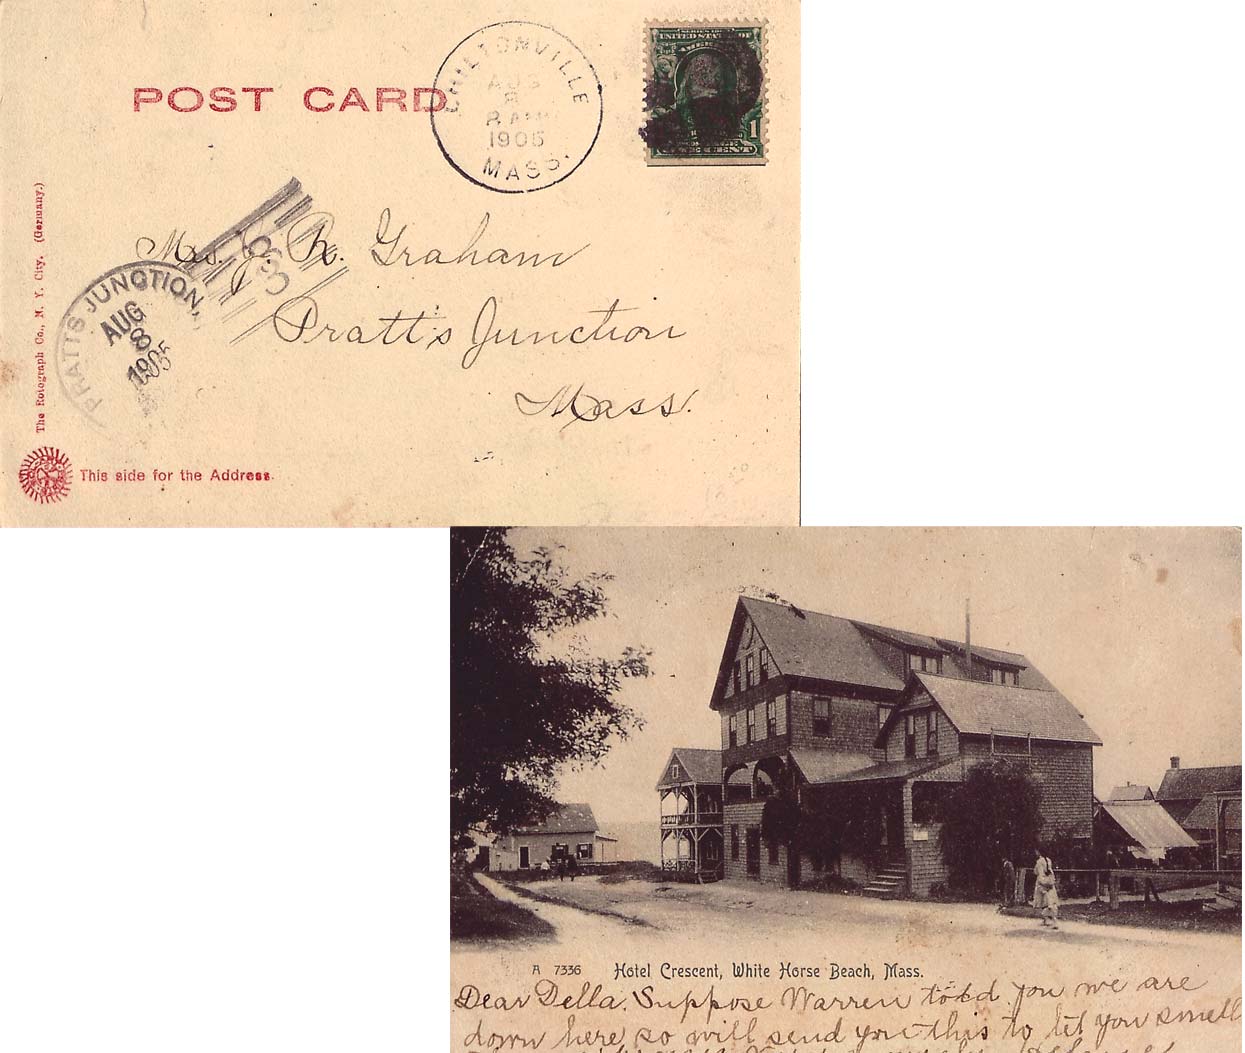 POST CARD
CHILTONVILLE
AUG
8
8 AM
1905
MASS.
SERIES 1902
UNITED STATES OF
AMERICA
1
Mrs. J. R. Graham
Pratt's Junction
Mass.
PRATTS JUNCTION,
AUG
8
1905
The Rotograph Co., N. Y. City. (Germany.)
This side for the Address.
A 7336 Hotel Crescent, White Horse Beach, Mass.
Dear Della. Suppose Warren told you we are
down here so will send you this to let you smell